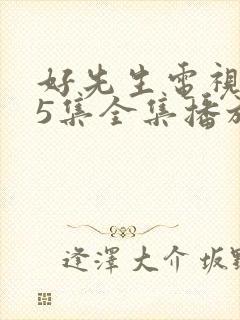 好先生電視
5集全集播放
逢澤大介坂野